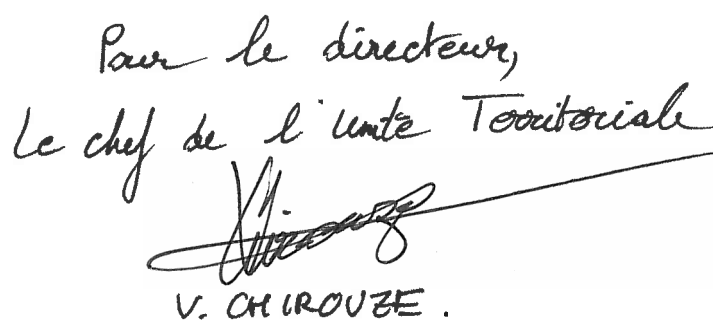 Pour le directeur,
Le chef de l'unité Territoriale
V. CHIROUZE.